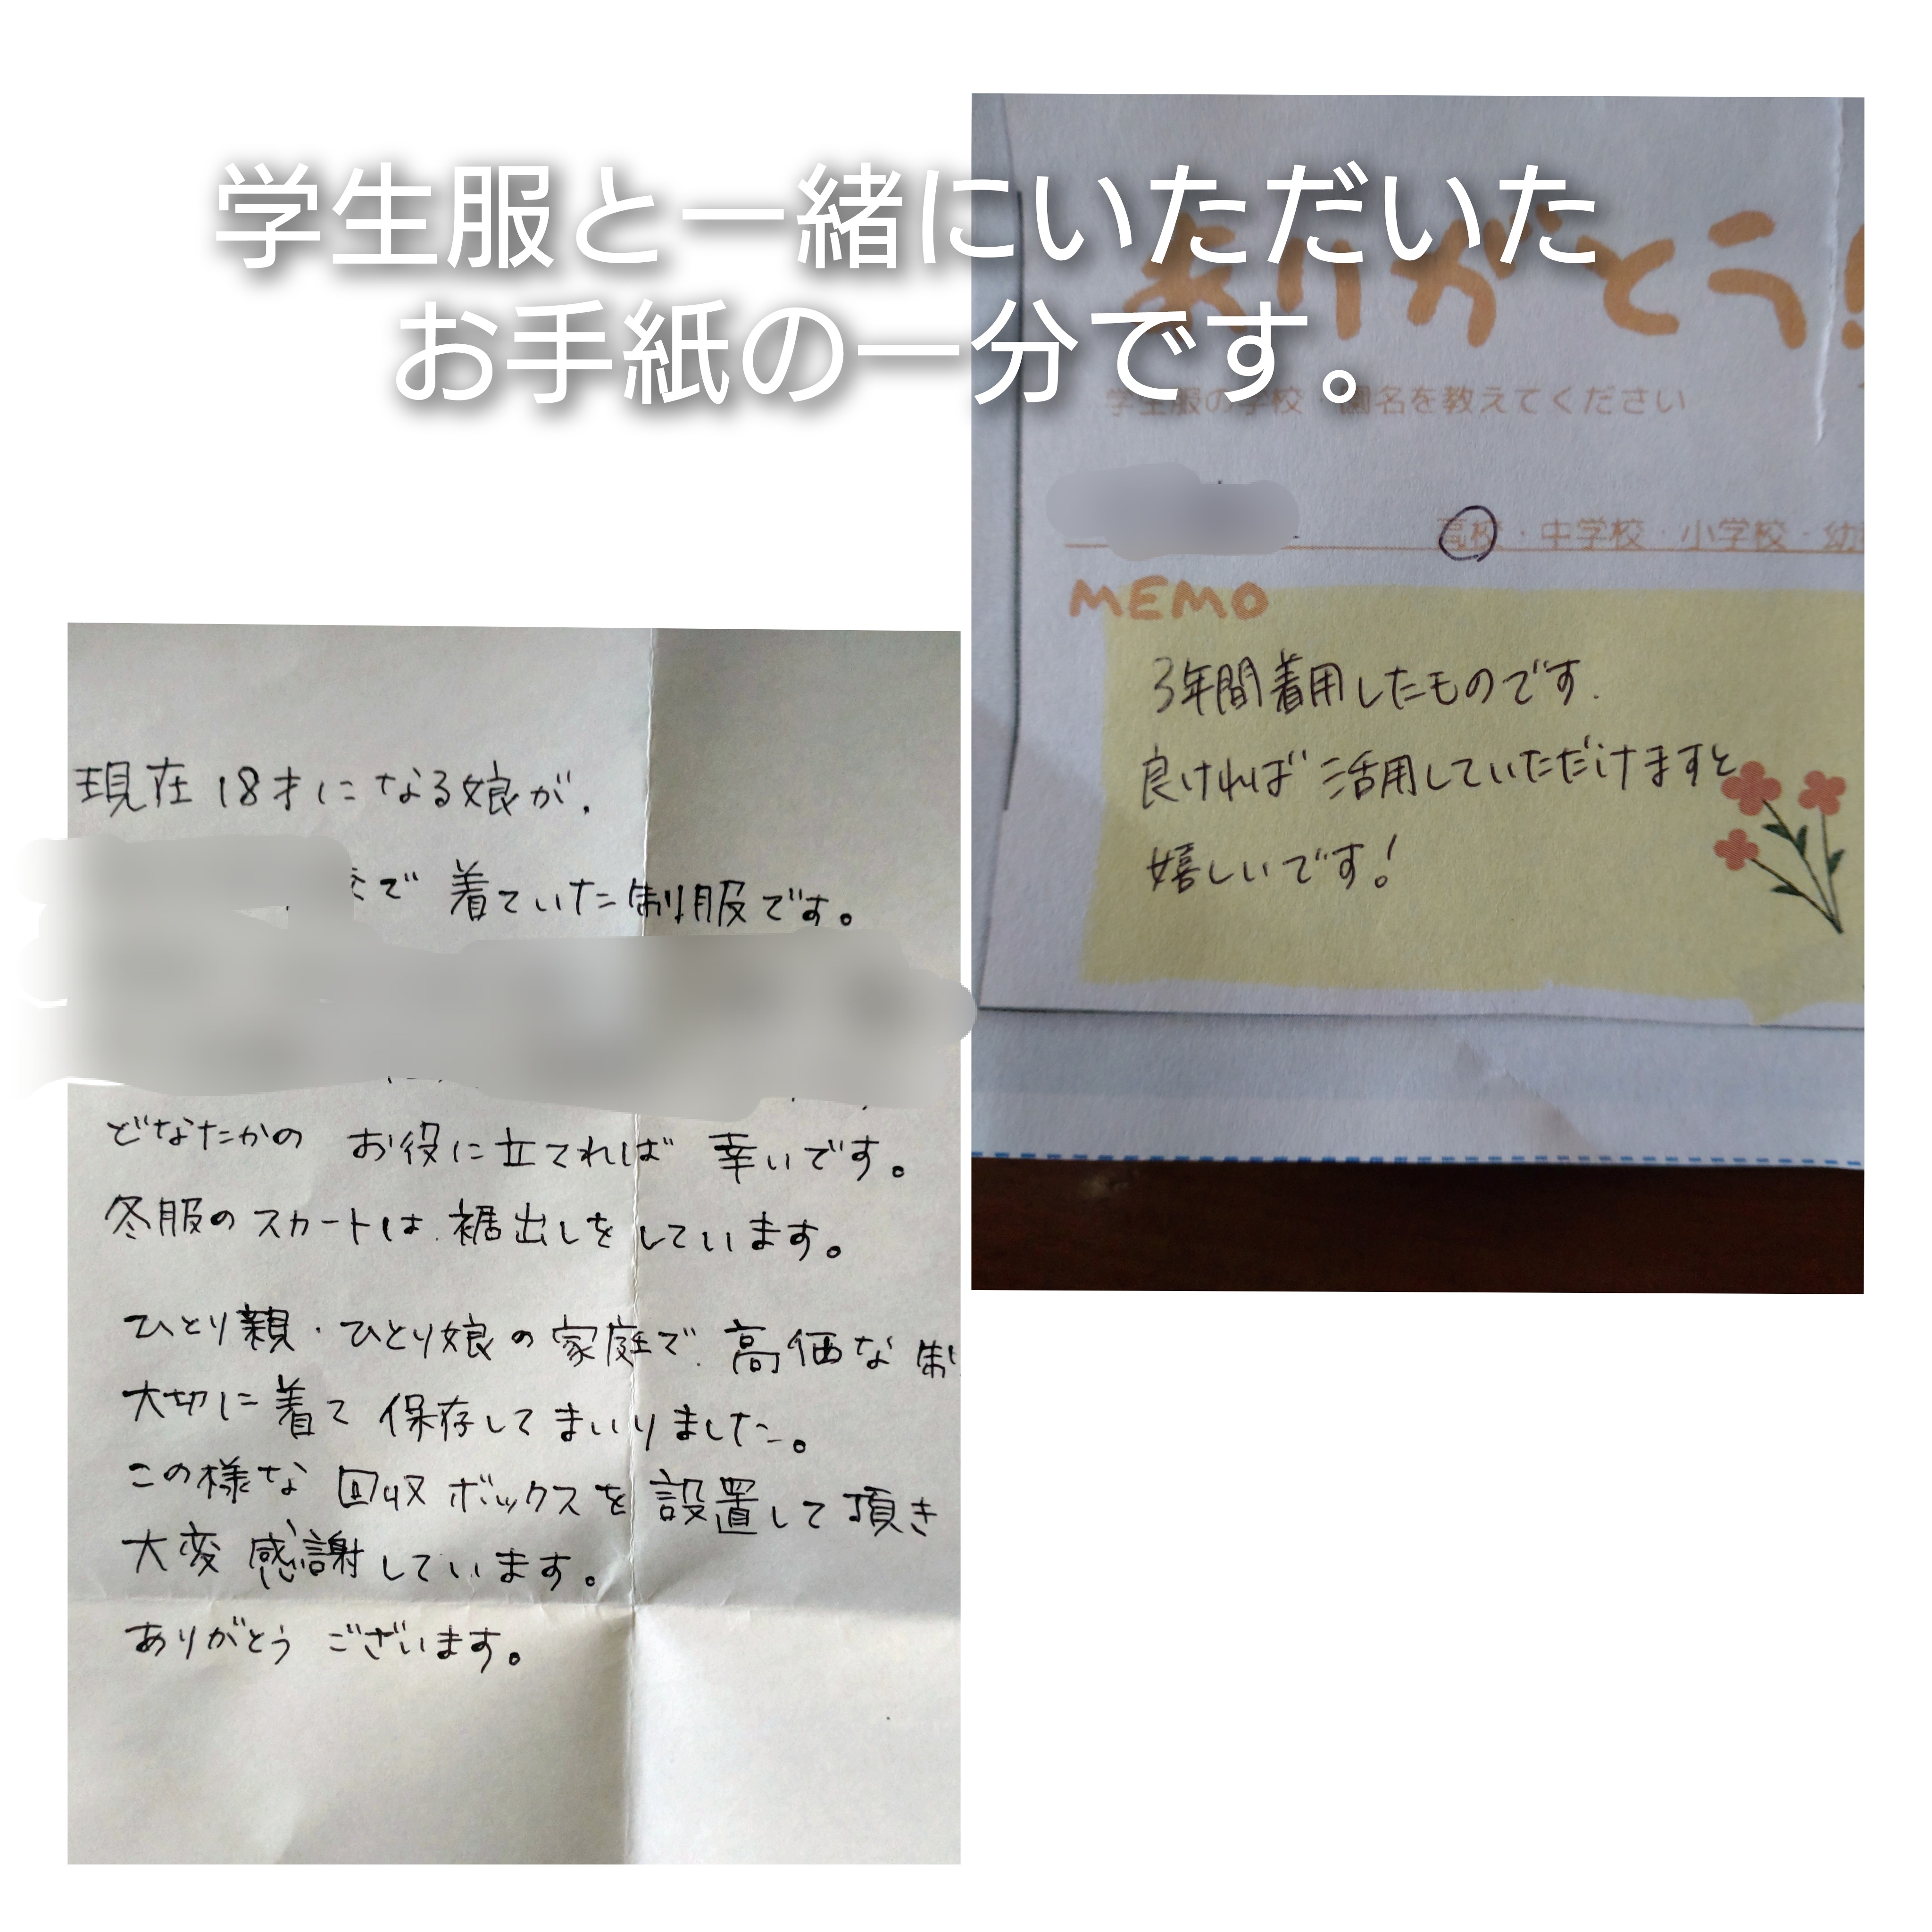 学生服と一緒にいただいた
お手紙の一分です。
ありがとう!
学生服の学校・園名を教えてください
高校・中学校・小学校・幼
MEMO
3年間着用したものです.
良ければ活用していただけますと
嬉しいです!
現在18才になる娘が、
で着ていた制服です。
どなたかの お役に立てれば 幸いです。
冬服のスカートは、裾出しをしています。
ひとり親・ひとり娘の家庭で、高価な制
大切に着て 保存してまいりました。
この様な 回収ボックスを設置して頂き
大変感謝しています。
ありがとう ございます。